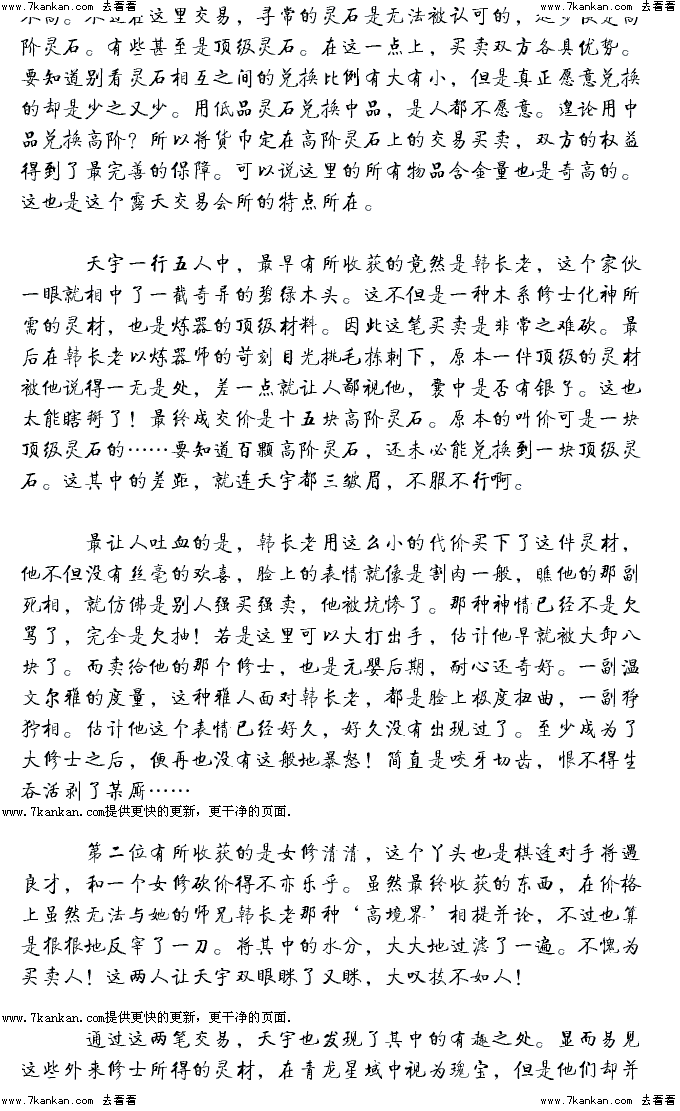 www.7kankan.com 去看看 www.7kankan.com 去看看
不过在这里交易，寻常的灵石是无法被认可的，
阶灵石。有些甚至是顶级灵石。在这一点上，买卖双方各具优势。
要知道别看灵石相互之间的兑换比例有大有小，但是真正愿意兑换
的却是少之又少。用低品灵石兑换中品，是人都不愿意。遑论用中
品兑换高阶？所以将货币定在高阶灵石上的交易买卖，双方的权益
得到了最完善的保障。可以说这里的所有物品含金量也是奇高的。
这也是这个露天交易会所的特点所在。
天宇一行五人中，最早有所收获的竟然是韩长老，这个家伙
一眼就相中了一截奇异的碧绿木头。这不但是一种木系修士化神所
需的灵材，也是炼器的顶级材料。因此这笔买卖是非常之难砍。最
后在韩长老以炼器师的苛刻目光挑毛拣刺下，原本一件顶级的灵材
被他说得一无是处，差一点就让人鄙视他，囊中是否有银子。这也
太能瞎掰了！最终成交价是十五块高阶灵石。原本的叫价可是一块
顶级灵石的……要知道百颗高阶灵石，还未必能兑换到一块顶级灵
石。这其中的差距，就连天宇都三皱眉，不服不行啊。
最让人吐血的是，韩长老用这么小的代价买下了这件灵材，
他不但没有丝毫的欢喜，脸上的表情就像是割肉一般，瞧他的那副
死相，就仿佛是别人强买强卖，他被坑惨了。那种神情已经不是欠
骂了，完全是欠抽！若是这里可以大打出手，估计他早就被大卸八
块了。而卖给他的那个修士，也是元婴后期，耐心还奇好。一副温
文尔雅的度量，这种雅人面对韩长老，都是脸上极度扭曲，一副狰
狞相。估计他这个表情已经好久，好久没有出现过了。至少成为了
大修士之后，便再也没有这般地暴怒！简直是咬牙切齿，恨不得生
吞活剥了某厮……
www.7kankan.com提供更快的更新，更干净的页面.
第二位有所收获的是女修清清，这个丫头也是棋逢对手将遇
良才，和一个女修砍价得不亦乐乎。虽然最终收获的东西，在价格
上虽然无法与她的师兄韩长老那种‘高境界’相提并论，不过也算
是狠狠地反宰了一刀。将其中的水分，大大地过滤了一遍。不愧为
买卖人！这两人让天宇双眼眯了又眯，大叹技不如人！
www.7kankan.com提供更快的更新，更干净的页面.
通过这两笔交易，天宇也发现了其中的有趣之处。显而易见
这些外来修士所得的灵材，在青龙星域中视为瑰宝，但是他们却并
www.7kankan.com 去看看 www.7kankan.com 去看看